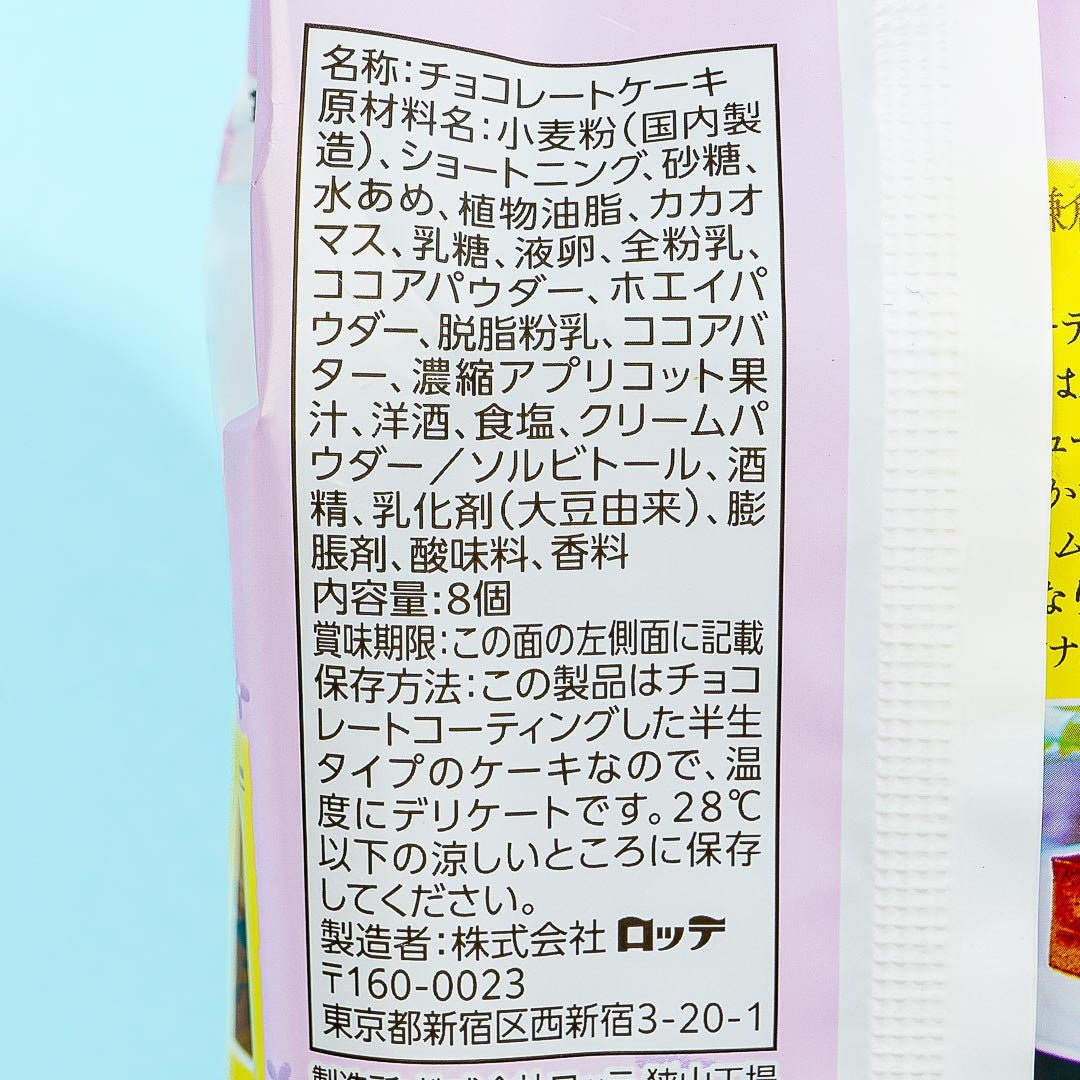 名称:チョコレートケーキ
原材料名:小麦粉(国内製
造)、ショートニング、砂糖、
水あめ、植物油脂、カカオ
マス、乳糖、液卵、全粉乳、
ココアパウダー、ホエイパ
ウダー、脱脂粉乳、ココアバ
ター、濃縮アプリコット果
汁、洋酒、食塩、クリームパ
ウダー/ソルビトール、酒
精、乳化剤(大豆由来)、膨
脹剤、酸味料、香料
内容量:8個
賞味期限:この面の左側面に記載
保存方法:この製品はチョコ
レートコーティングした半生
タイプのケーキなので、温
度にデリケートです。28℃
以下の涼しいところに保存
してください。
製造者:株式会社 ロッテ
〒160-0023
東京都新宿区西新宿3-20-1
製造所 株式会社ロッテ 狭山工場